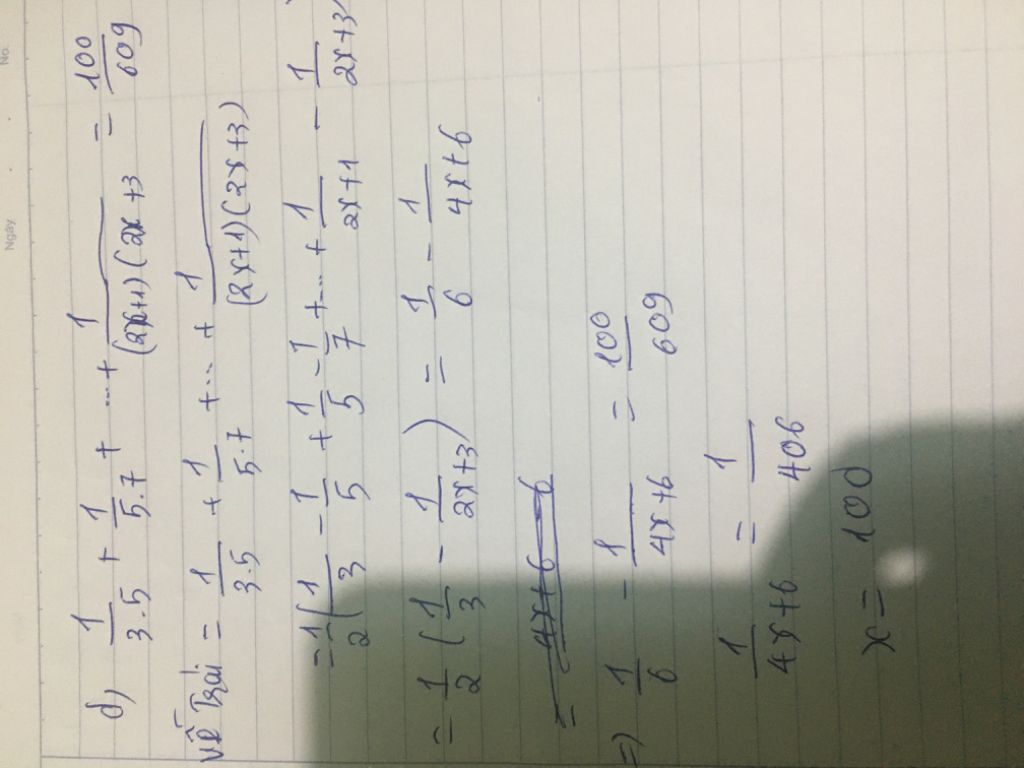 No.
Ngày
d) 1/3.5 + 1/5.7 + ...+ 1/(2x+1)(2x+3 = 100/609
Vế Trái = 1/3.5 + 1/5.7 +... + 1/(2x+1)(2x+3)
= 1/2(1/3 - 1/5 + 1/5 - 1/7 +... + 1/2x+1 - 1/2x+3)
= 1/2 (1/3 - 1/2x+3) = 1/6 - 1/4x+6
= 4x+6-6
=) 1/6 - 1/4x+6 = 100/609
1/4x+6 = 1/406
x = 100